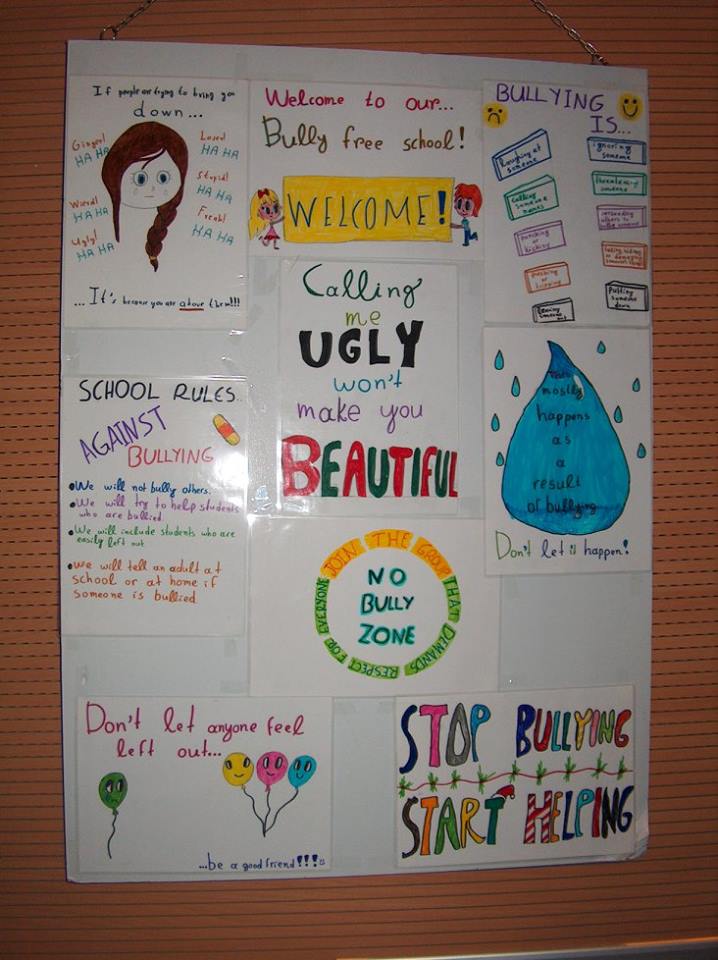 If people are trying to bring you
down...
Ginger!
HA HA
Weird!
HA HA
Ugly!
HA HA
Loser!
HA HA
Stupid!
HA HA
Freak!
HA HA
...It's because you are above them!!!
Welcome to our...
Bully free school!
WELCOME!
BULLYING
IS...
laughing at
someone
calling
someone
names
punching
or
kicking
pushing
or
ignoring
someone
threatening
someone
putting
someone
down
Calling
me
UGLY
won't
make you
BEAUTIFUL
SCHOOL RULES...
AGAINST
BULLYING
•We will not bully others.
•We will try to help students
who are bullied
•We will include students who are
easily left out
•we will tell an adult at
school or at home if
someone is bullied
This
mostly
happens
as
a
result
of bullying
Don't let it happen!
JOIN THE GROUP THAT DEMANDS RESPECT FOR EVERYONE
NO
BULLY
ZONE
Don't let anyone feel
left out...
...be a good friend!!!
STOP BULLYING
START HELPING